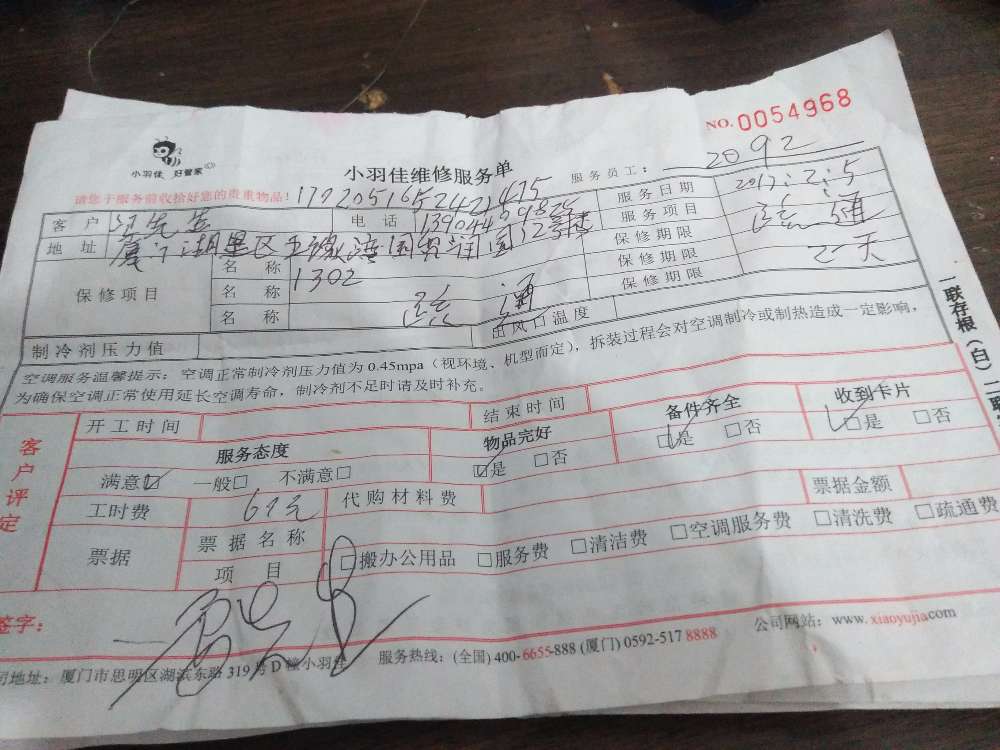 NO. 0054968
小羽佳 好管家
小羽佳维修服务单
服务员工： 2092
请您于服务前收拾好您的贵重物品！
客 户 电 话 服务日期 2017：2：5
地 址 服务项目 通
保修项目 名 称 1302 保修期限
名 称 通 保修期限 天
名 称 保修期限
制冷剂压力值 出风口温度
空调服务温馨提示：空调正常制冷剂压力值为 0.45mpa（视环境、机型而定），拆装过程会对空调制冷或制热造成一定影响，
为确保空调正常使用延长空调寿命，制冷剂不足时请及时补充。
客户评定
开工时间 结束时间
服务态度 物品完好 备件齐全 收到卡片
满意☑ 一般□ 不满意□ ☑是 □否 ☑是 □否 ☑是 □否
工时费 代购材料费 票据金额
票据 票据名称 □搬办公用品 □服务费 □清洁费 □空调服务费 □清洗费 □疏通费
项 目
签字：
司地址：厦门市思明区湖滨东路 319 号 D 幢小羽佳 服务热线：(全国) 400-6655-888 (厦门) 0592-517 8888 公司网站：www. xiaoyujia.com
一联存根（白）二联